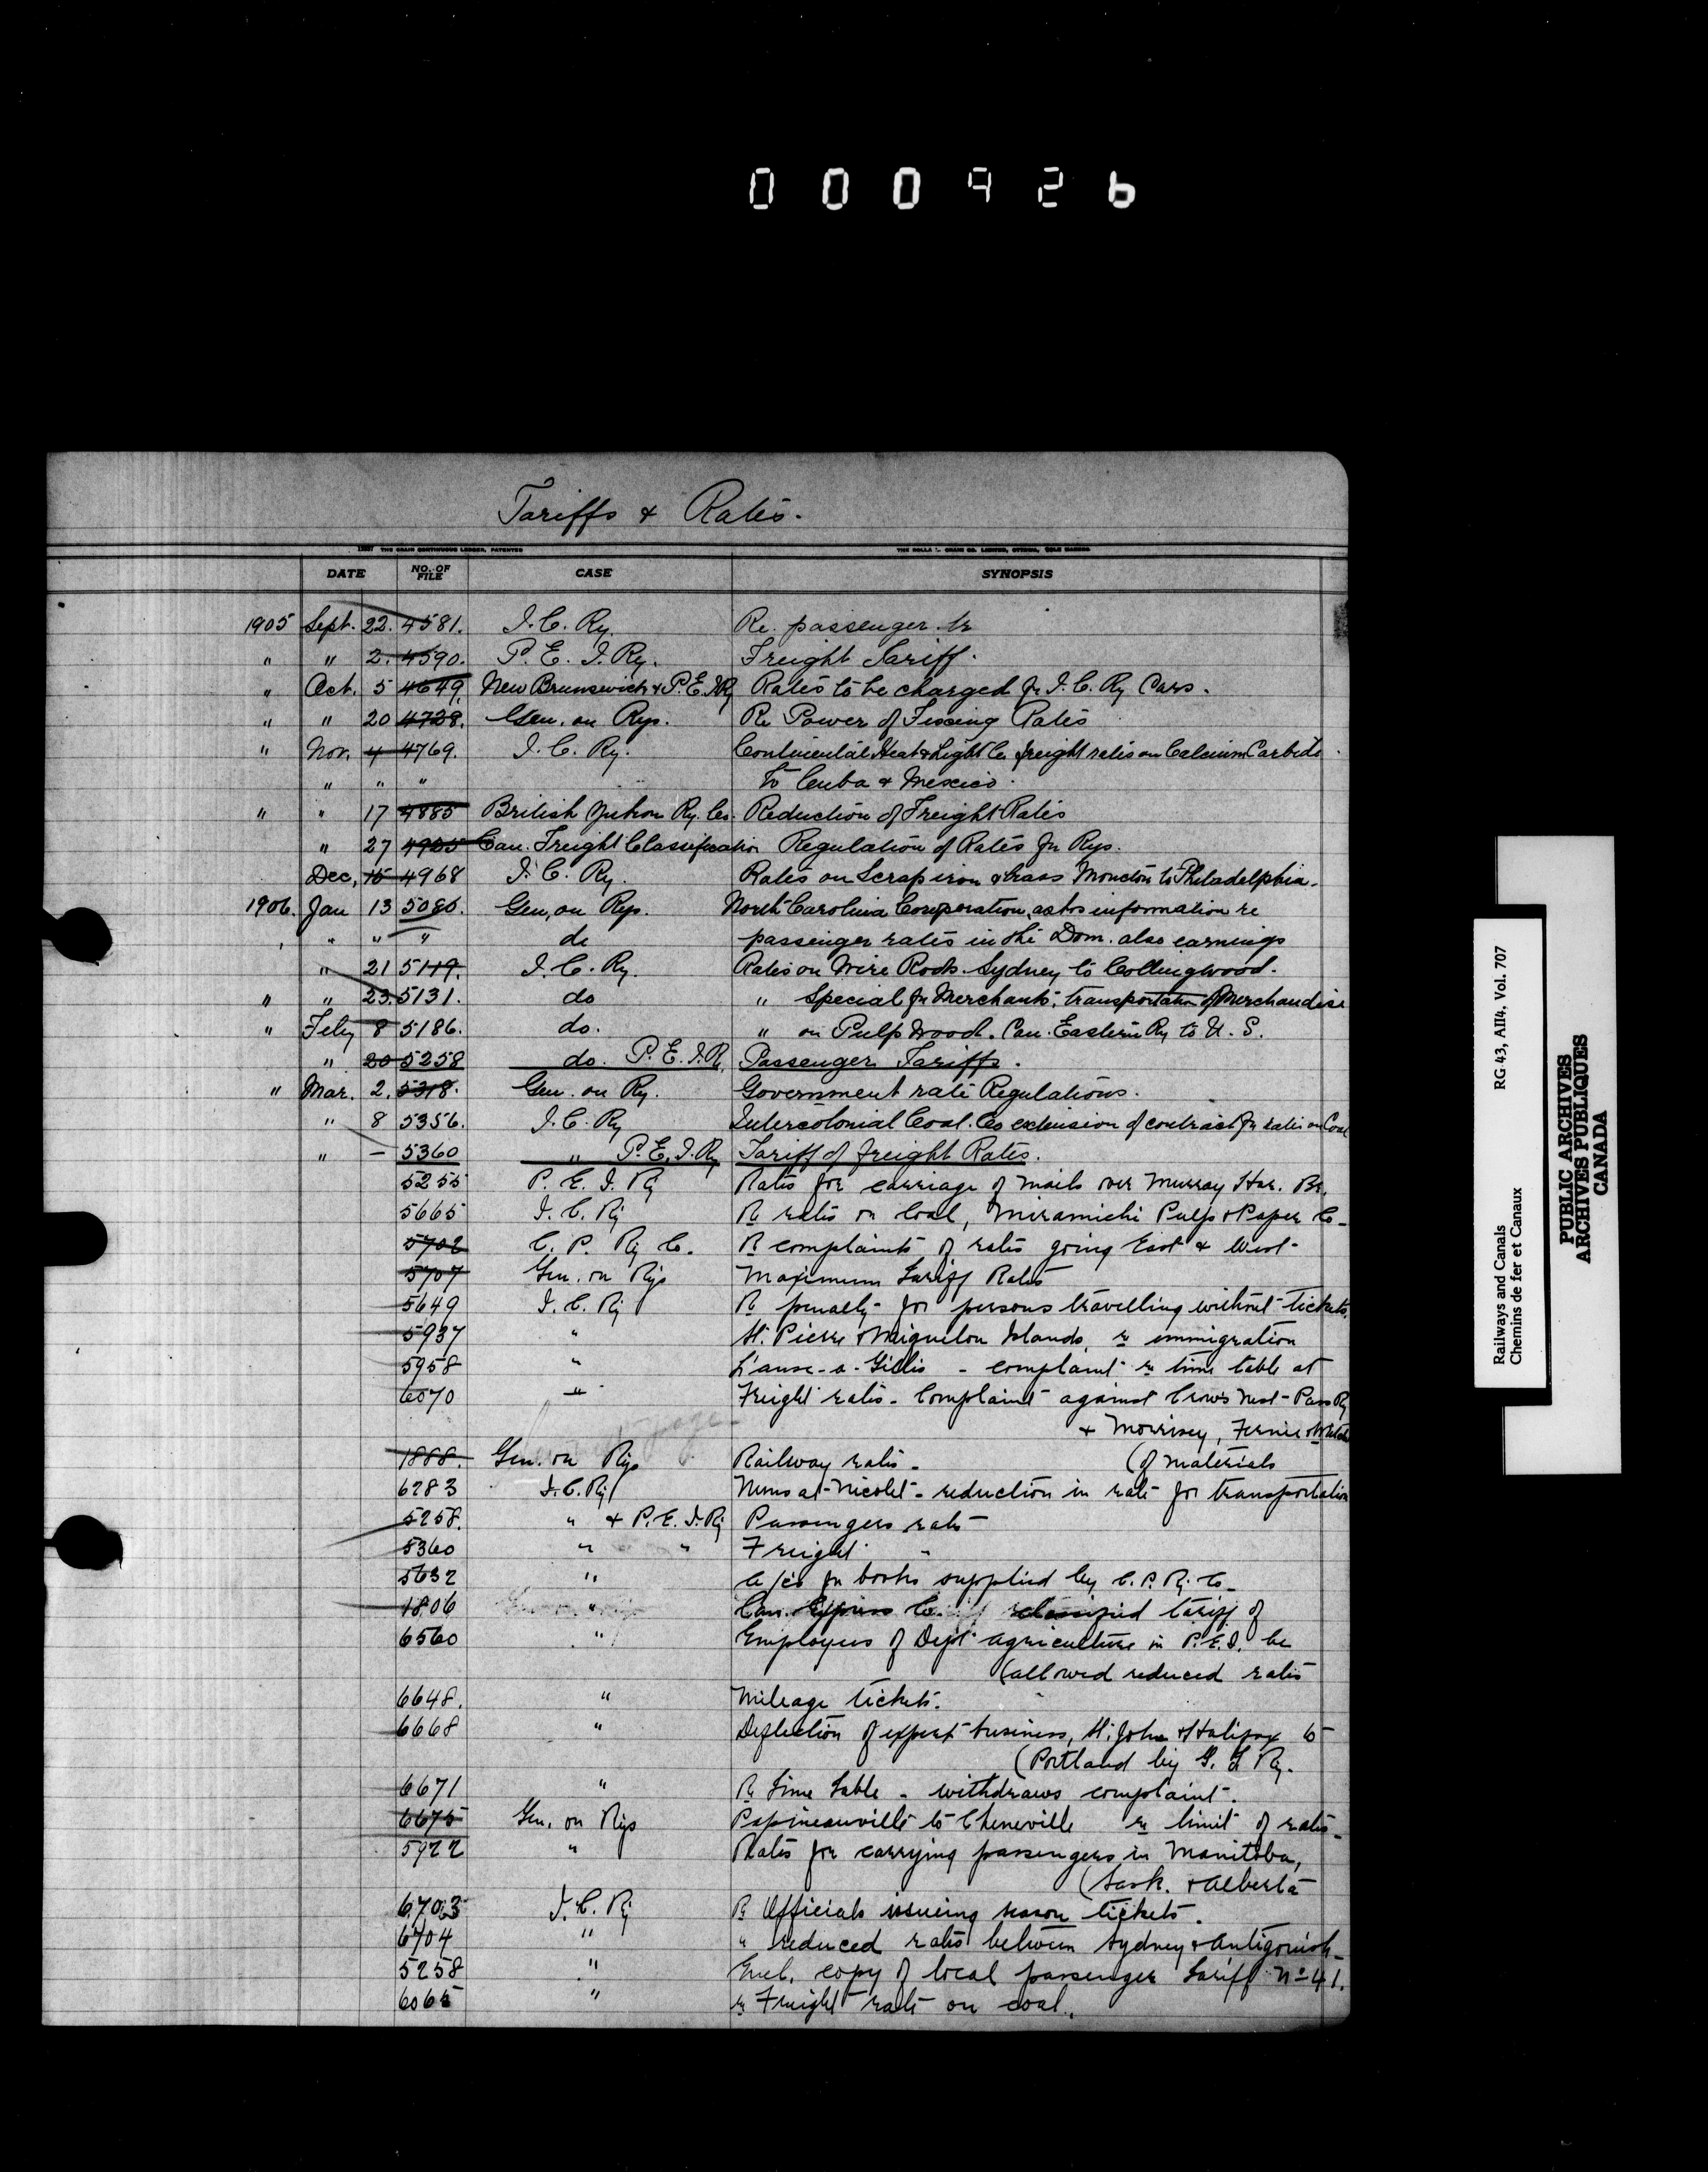 000926
Tariffs & Rates.
THE CRAIN CONTINUOUS LEDGER, PATENTED
DATE NO. OF FILE CASE SYNOPSIS
1905 Sept. 22. 4581. I. C. Ry. Re. passenger
" " 2. 4590. P. E. I. Ry. Freight Tariff.
" Oct. 5 4649. New Brunswick & P.E.I Ry Rates to be charged for I. C. Ry Cars.
" " 20 4728. Gen. on Rys. Re Power of Fixing Rates
" Nov. 4 4769. I. C. Ry. Continental Heat & Light Co. freight rates on Calcium Carbide
" " " to Cuba & Mexico.
" " 17 4885 British Yukon Ry. Co. Reduction of Freight Rates
" 27 4905 Can. Freight Classification Regulation of Rates for Rys.
Dec, 15 4968 I. C. Ry. Rates on Scrap iron & brass Moncton to Philadelphia.
1906. Jan 13 5080. Gen, on Rys. North Carolina Corporation, asks information re
" " " do passenger rates in the Dom. also earnings
" 21 5119. I. C. Ry. Rates on Wire Rods. Sydney to Collingwood.
" " 23. 5131. do " Special for Merchants, transportation of Merchandise
" Feby 8 5186. do. " on Pulp Wood. Can. Eastern Ry to U. S.
" 20 5258 do. P. E. I. R. Passenger Tariffs.
" Mar. 2. 5318. Gen. on Ry. Government rate Regulations.
" 8 5356. I. C. Ry Intercolonial Coal. Co extension of contract for rates on Coal
" – 5360 " P. E. I. Ry Tariff of freight Rates.
5255 P. E. I. Ry Rates for carriage of mails over Murray Har. Br.
5665 I. C. Ry Re rates on Coal, Miramichi Pulp & Paper Co-
5702 C. P. Ry Co. Re complaints of rates going East & West-
5707 Gen. on Rys Maximum Tariff Rates
5649 I. C. Ry Re penalty for persons travelling without tickets.
5937 " St. Pierre & Miquelon Islands re immigration
5958 " L'anse-a-Gillis - complaint re time table at
6070 " Freight rates - Complaint against Crows Nest-Pass Ry
& Morrisey, Fernie & Michel
1888. Gen. on Rys Railway rates -
(of materials
6283 I. C. Ry Nuns at Nicolet - reduction in rate for transportation
5258. " & P. E. I. Ry Passengers rate
5360 " " Freight "
5632 " a/cs for books supplied by C. P. Ry. Co-
1806 " Can. Express Co. reclassified tariff of
6560 " Employees of Dept agriculture in P.E.I. be
(allowed reduced rates
6648. " Mileage tickets.
6668 " Deflection of export business, St. John & Halifax to
(Portland by G. T. Ry.
6671 " Re Time Table - withdraws complaint.
6675 Gen. on Rys Papineauville to Cheneville re limit of rates-
5922 " Rates for carrying passengers in Manitoba,
(Sask. & Alberta
6703 I. C. Ry Re Officials issuing season tickets.
6704 " " reduced rates between Sydney & Antigonish-
5258 " Encl. copy of local passenger Tariff No 41.
6065 " re Freight rate on coal.
Railways and Canals RG 43, AII4, Vol. 707
Chemins de fer et Canaux
PUBLIC ARCHIVES
ARCHIVES PUBLIQUES
CANADA